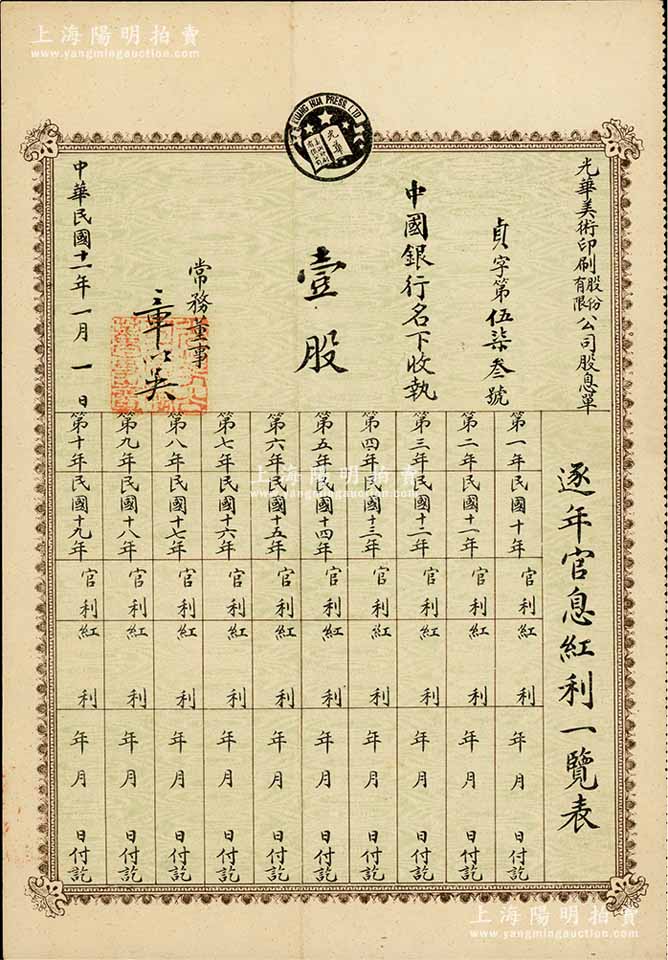 上海陽明拍賣
www.yangmingauction.com
KUANG HUA PRESS LTD
光華
光華美術印刷股份有限公司股息單
貞字第伍柒叁號
中國銀行名下收執
壹股
常務董事
章以吳
中華民國十一年一月一日
逐年官息紅利一覽表
第一年民國十年 官利 紅利 年月日付訖
第二年民國十一年 官利 紅利 年月日付訖
第三年民國十二年 官利 紅利 年月日付訖
第四年民國十三年 官利 紅利 年月日付訖
第五年民國十四年 官利 紅利 年月日付訖
第六年民國十五年 官利 紅利 年月日付訖
第七年民國十六年 官利 紅利 年月日付訖
第八年民國十七年 官利 紅利 年月日付訖
第九年民國十八年 官利 紅利 年月日付訖
第十年民國十九年 官利 紅利 年月日付訖
上海陽明拍賣
www.yangmingauction.com
上海陽明拍賣
www.yangmingauction.com